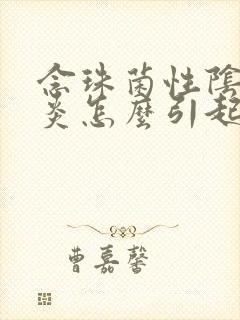 念珠菌性陰
炎怎麼引起
曹嘉馨